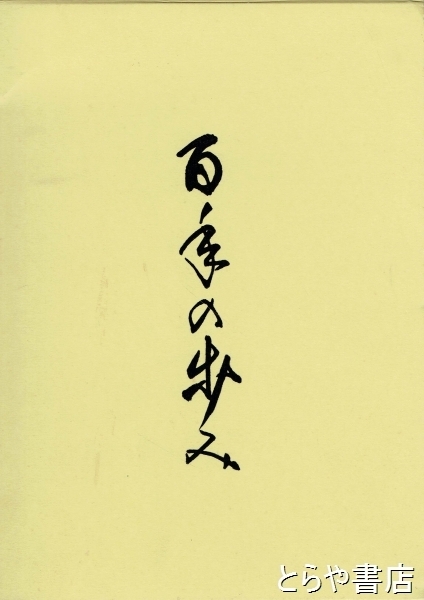 百年の歩み
とらや書店